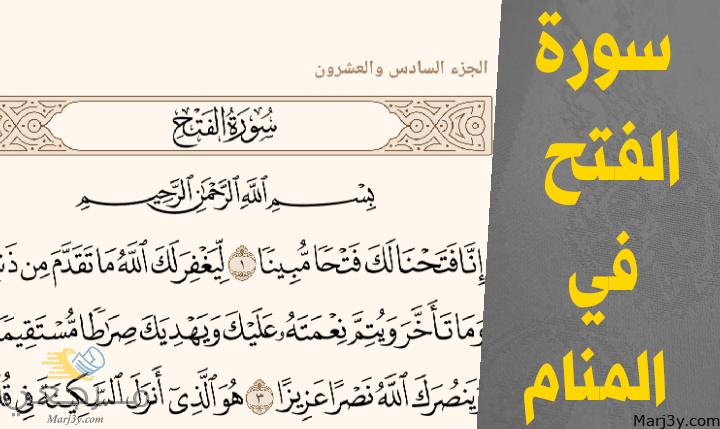 سورة
الفتح
في
المنام
الجزء السادس والعشرون
سُورَةُ الفَتْحِ
بِسْمِ ٱللَّهِ ٱلرَّحْمَٰنِ ٱلرَّحِيمِ
إِنَّا فَتَحْنَا لَكَ فَتْحًا مُّبِينًا ١ لِّيَغْفِرَ لَكَ ٱللَّهُ مَا تَقَدَّمَ مِن
وَمَا تَأَخَّرَ وَيُتِمَّ نِعْمَتَهُۥ عَلَيْكَ وَيَهْدِيَكَ صِرَٰطًا مُّسْتَقِيمًا
وَيَنصُرَكَ ٱللَّهُ نَصْرًا عَزِيزًا ٣ هُوَ ٱلَّذِىٓ أَنزَلَ ٱلسَّكِينَةَ فِى
مرجعي
Marj3y.com
Marj3y.com